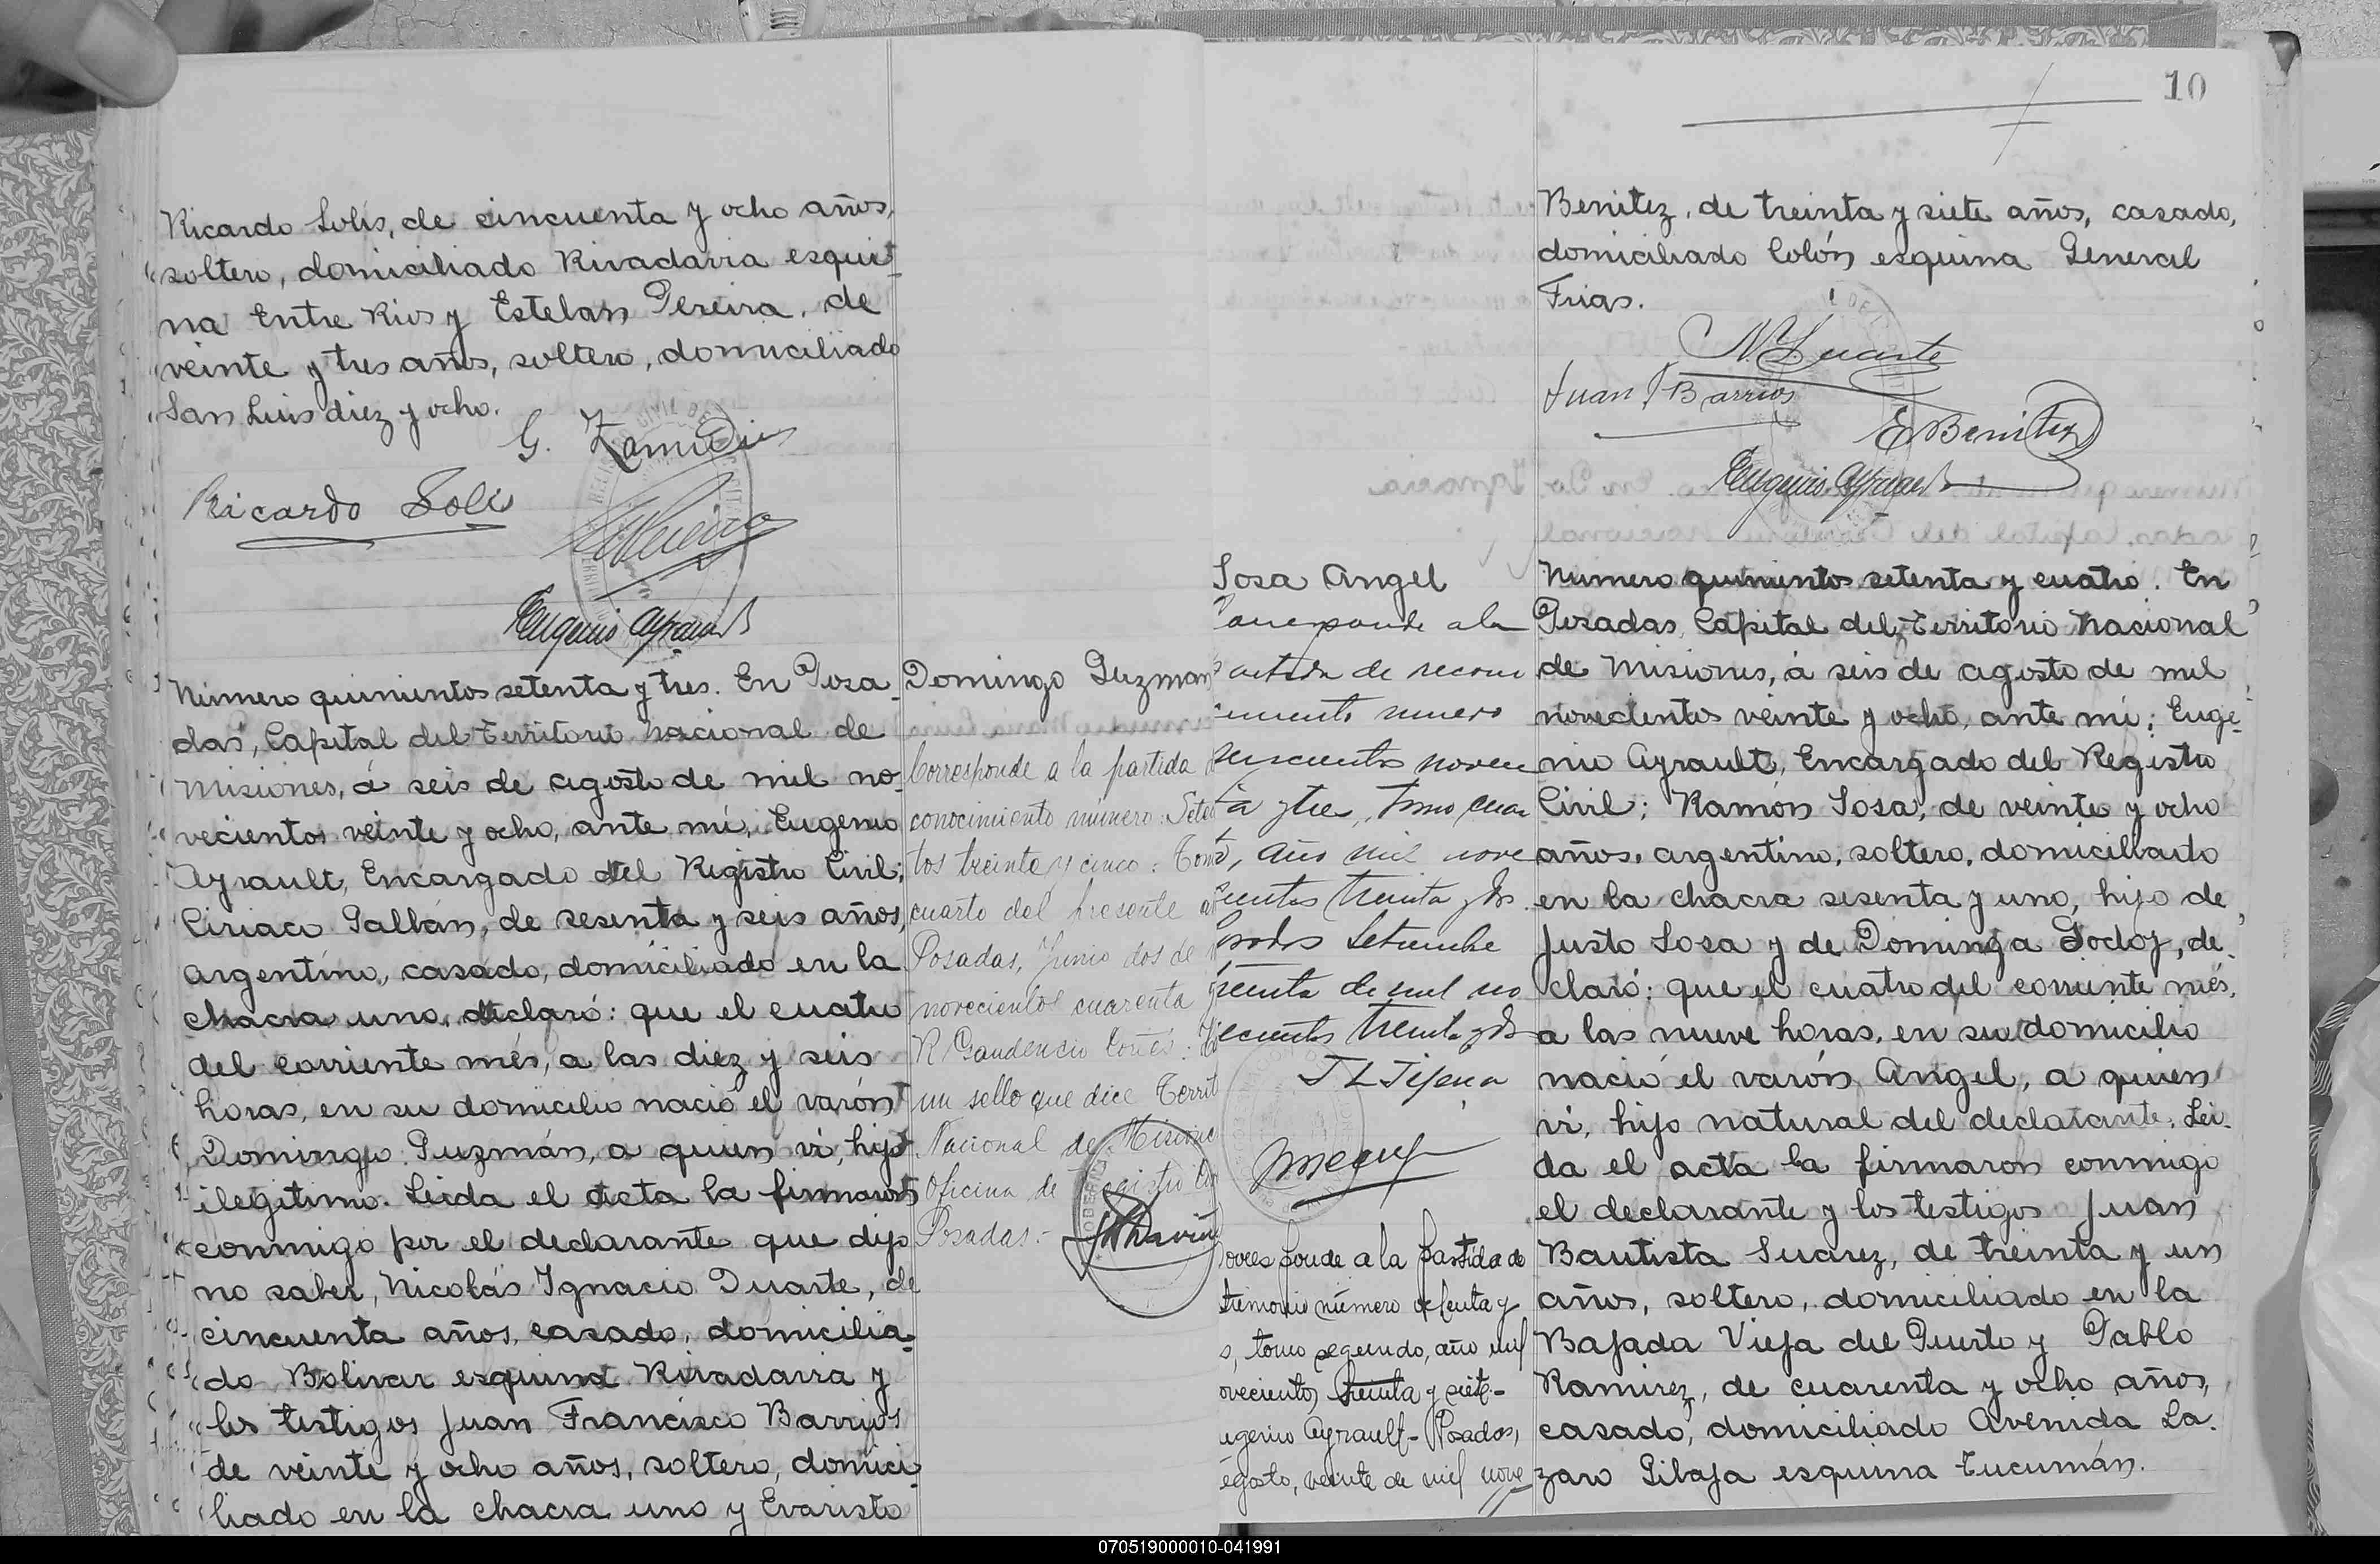 Ricardo Solis, de cincuenta y ocho años,
soltero, domiciliado Rivadavia esqui-
na Entre Rios y Estelan Pereira, de
veinte y tres años, soltero, domiciliado
San Luis diez y ocho.
G. Zamudio
Ricardo Solis
Eugenio Ayrault
Número quinientos setenta y tres. En Posa-
das, Capital del Territorio Nacional de
Misiones, á seis de agosto de mil no-
vecientos veinte y ocho, ante mí, Eugenio
Ayrault, Encargado del Registro Civil;
Ciriaco Galbán, de sesenta y seis años,
argentino, casado, domiciliado en la
chacra uno, declaró: que el cuatro
del corriente més, a las diez y seis
horas, en su domicilio nació el varón
Domingo Guzmán, a quien vi, hijo
ilegitimo. Leida el acta la firmaron
conmigo por el declarante que dijo
no saber, Nicolás Ignacio Duarte, de
cincuenta años, casado, domicilia-
do Bolivar esquina Rivadavia y
los testigos Juan Francisco Barrios
de veinte y ocho años, soltero, domici-
liado en la chacra uno y Evaristo
Domingo Guzman
Corresponde a la partida
conocimiento número: Sete
tos treinta y cinco: Tomo
cuarto del presente
Posadas, Junio dos de
novecientos cuarenta
R Gaudencio Cortés:
un sello que dice Territ
Nacional de Misione
Oficina de Registro
Posadas.-
10
Benitez, de treinta y siete años, casado,
domiciliado Colón esquina General
Frias.
N I Duarte
Juan F Barrios
E Benitez
Eugenio Ayrault
Sosa Angel
Corresponde a la
partida de recono
cimiento numero
seiscientos noven
ta y tres, Tomo cuar
to, año mil nove
cientos treinta y dos.
Posadas Setiembre
treinta de mil no
vecientos treinta y dos
J L Tijera
corresponde a la partida de
trimonio número ochenta y
s, tomo segundo, año mil
ovecientos treinta y siete.-
ugenio Ayrault- Posadas,
agosto, veinte de mil nove
Número quinientos setenta y cuatro. En
Posadas, Capital del Territorio Nacional
de Misiones, á seis de agosto de mil
novecientos veinte y ocho, ante mí; Euge-
nio Ayrault, Encargado del Registro
Civil; Ramón Sosa, de veinte y ocho
años, argentino, soltero, domiciliado
en la chacra sesenta y uno, hijo de
Justo Sosa y de Dominga Godoy, de-
claró: que el cuatro del corriente més,
a las nueve horas, en su domicilio
nació el varón Angel, a quien
vi, hijo natural del declarante. Lei-
da el acta la firmaron conmigo
el declarante y los testigos Juan
Bautista Suarez, de treinta y un
años, soltero, domiciliado en la
Bajada Vieja del Puerto y Pablo
Ramirez, de cuarenta y ocho años,
casado, domiciliado Avenida La-
zaro Gibaja esquina Tucumán.
070519000010-041991